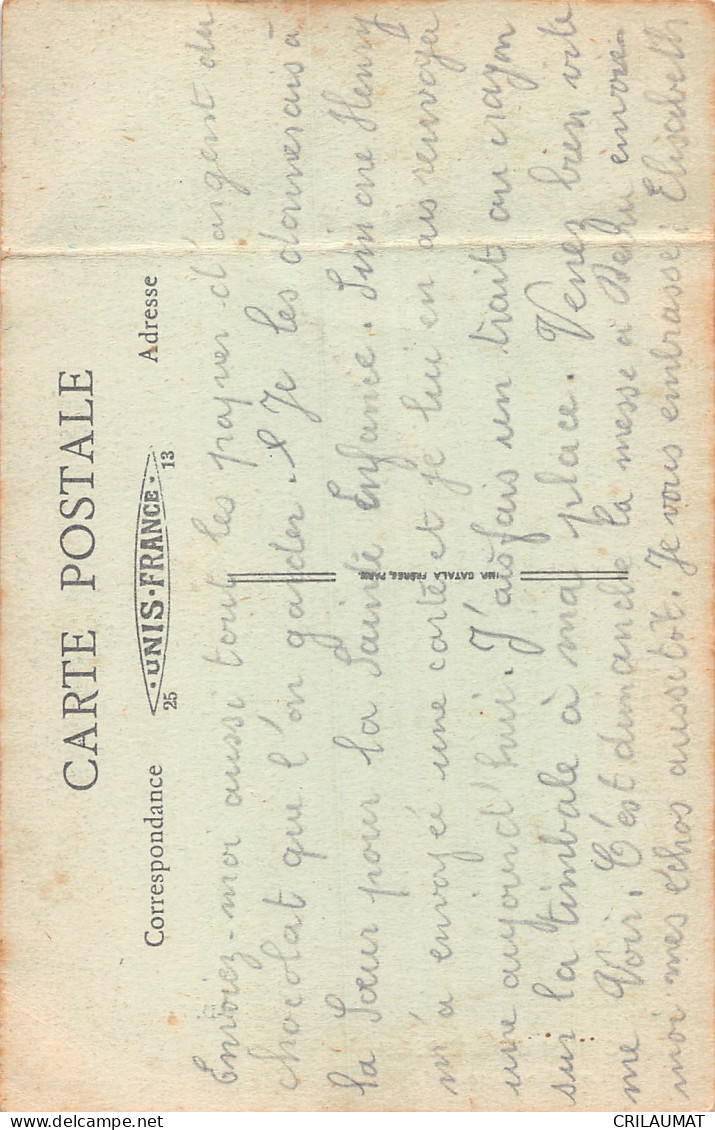 CARTE POSTALE
25 UNIS-FRANCE 13
Correspondance
Adresse
IMP. CATALA FRÈRES, PARIS
Envoiez-moi aussi tout les papier d'argent du
chocolat que l'on garder. Je les donnerais à
la Sœur pour la Sainte Enfance. Simone Henry
m'a envoyée une carte et je lui en ais renvoyé
une aujourd'hui. J'ais fais un trait au crayon
sur la timbale à ma place. Venez bien vite
me Voir. C'est dimanche la messe à envoiez
moi mes échos aussitôt. Je vous embrasse: Elisabeth
CRILAUMAT
www.delcampe.net